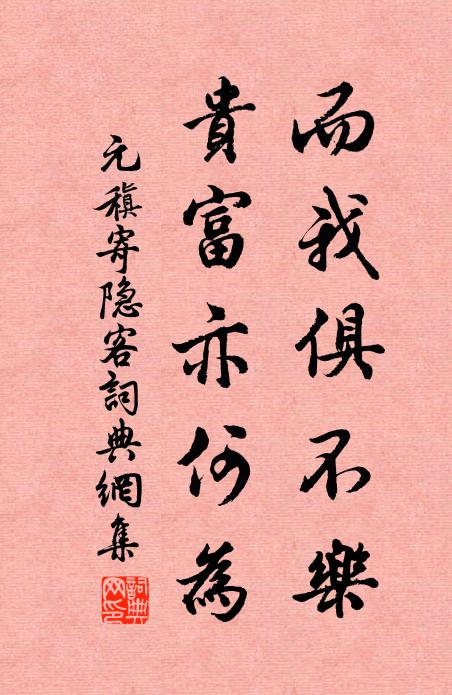 而我俱不樂
貴富亦何為
元稹寄隐客詞典網集
詞典
网印